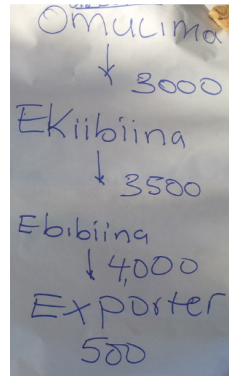 Omulima
↓ 3000
EKiibiina
↓ 3500
Ebibiina
↓ 4,000
Exporter
500